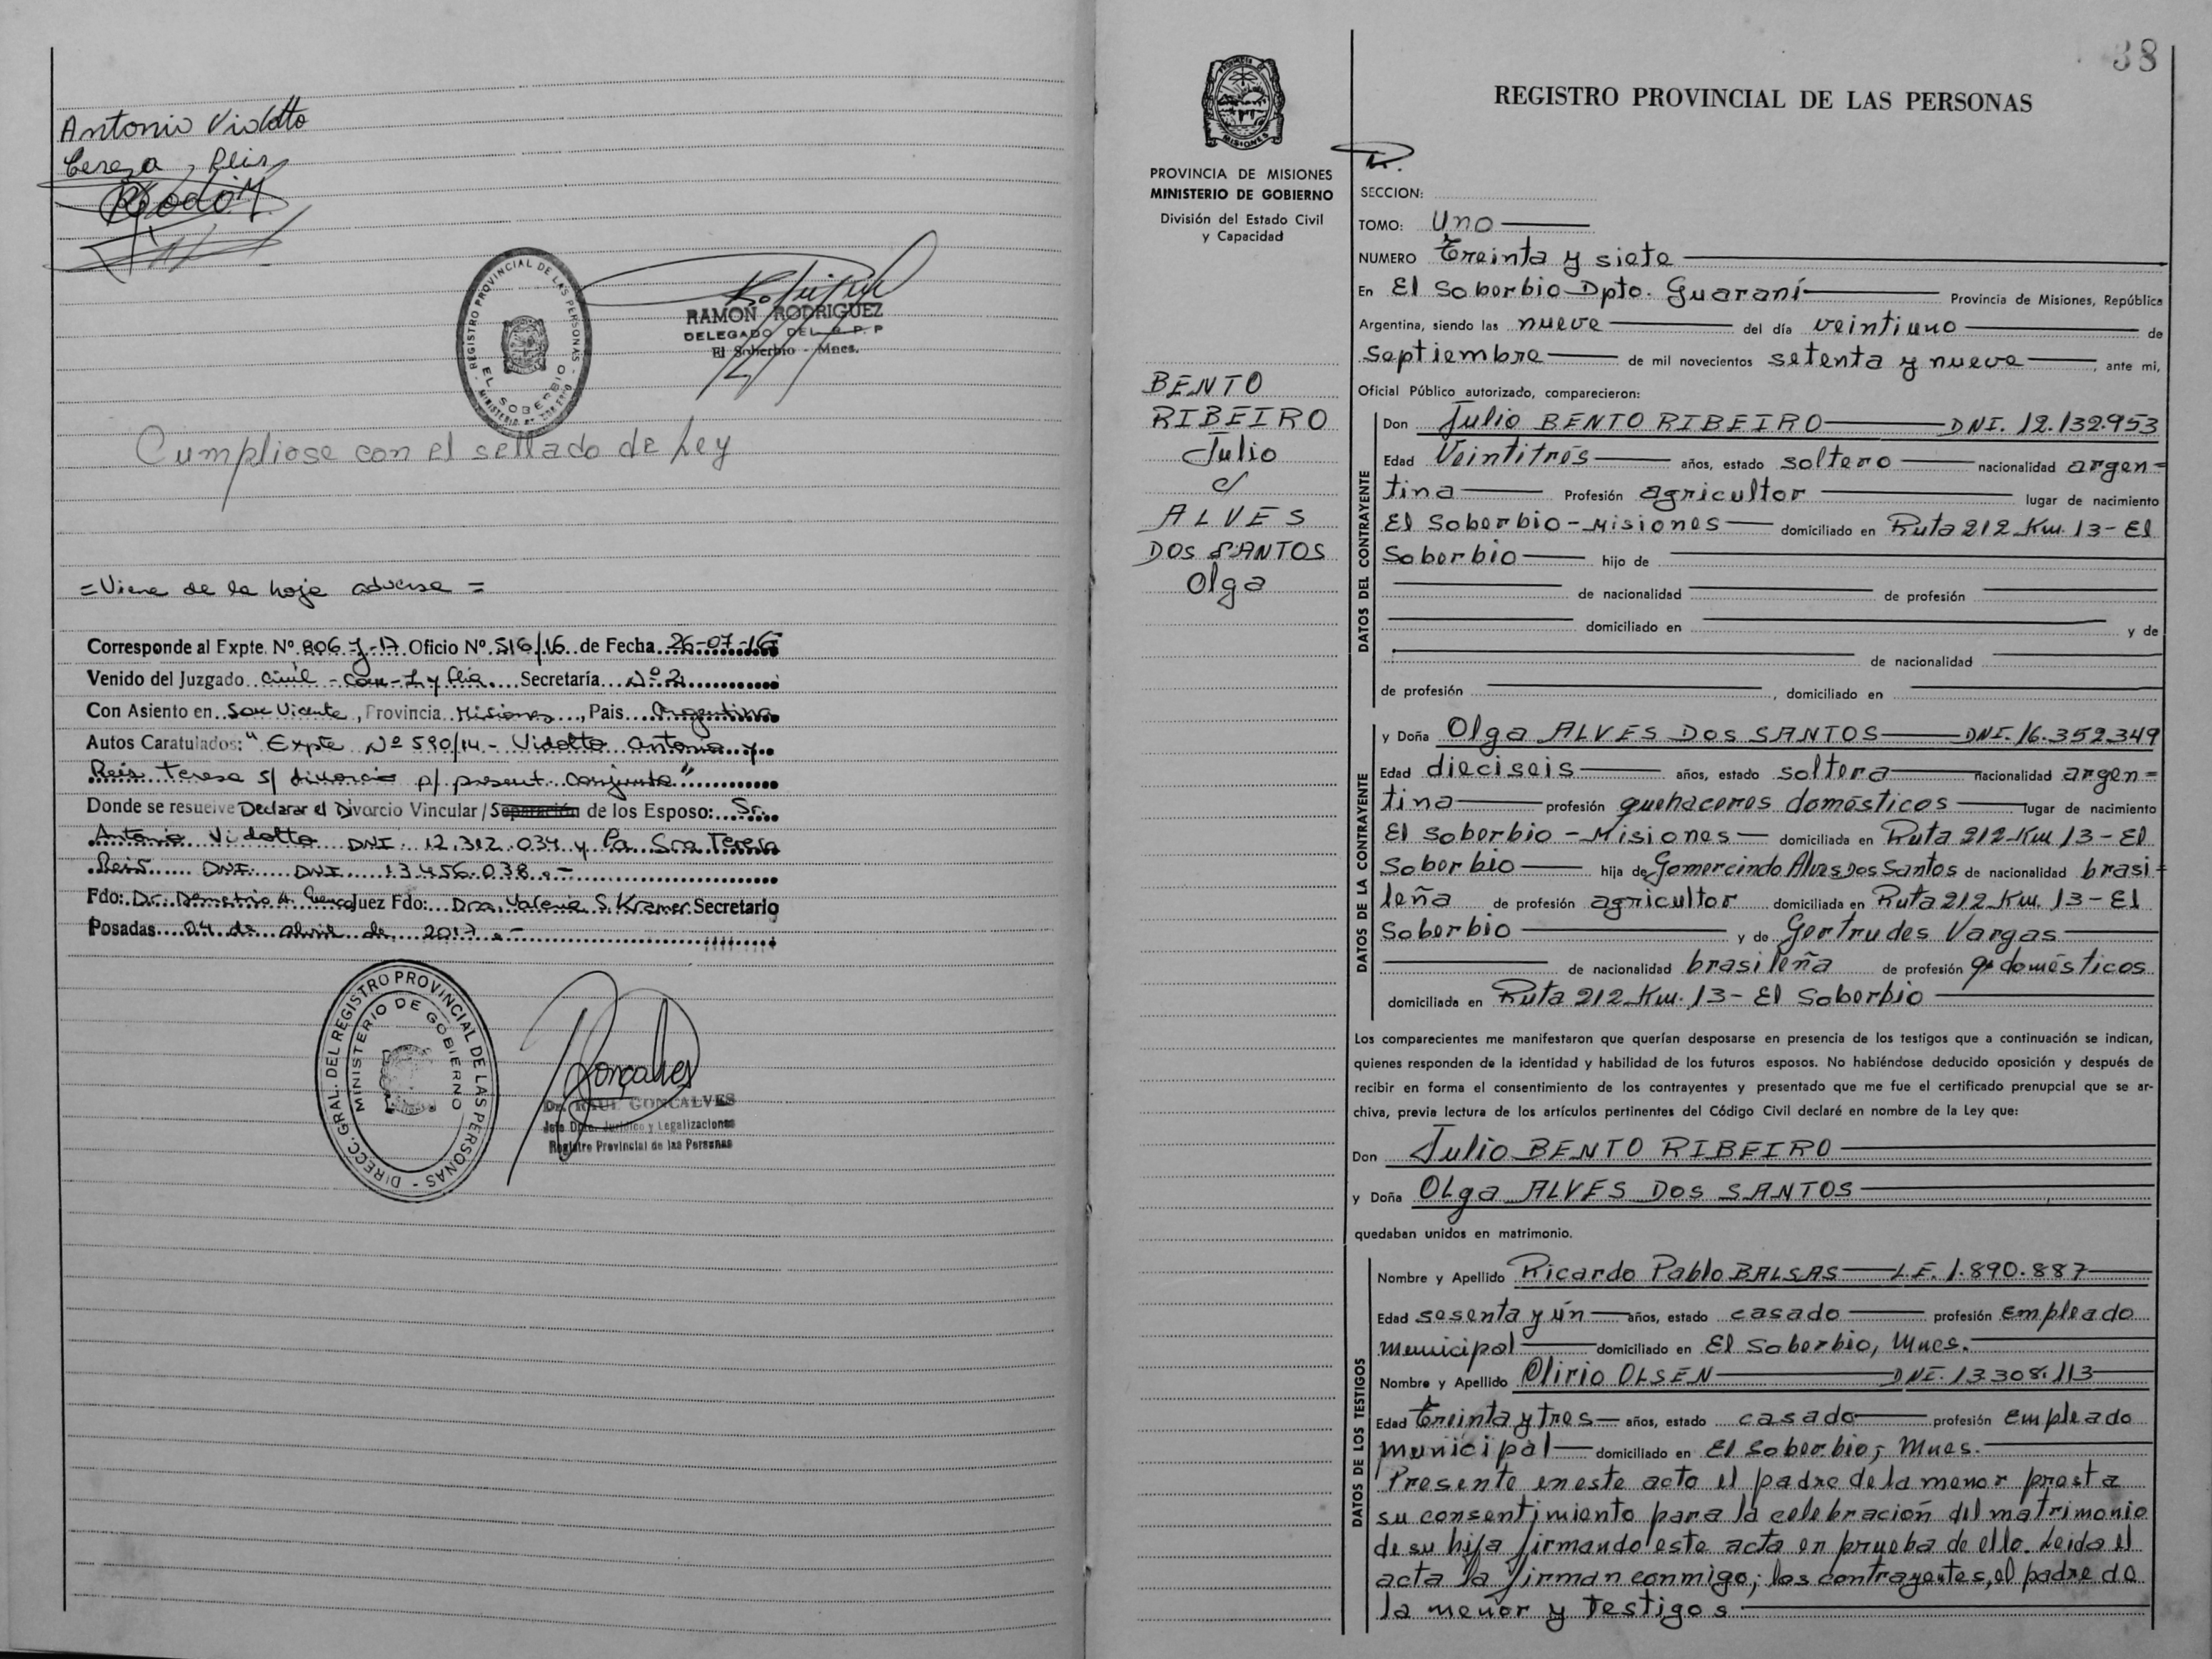 Antonio Vidotto
Tereza Reis
REGISTRO PROVINCIAL DE LAS PERSONAS
EL SOBERBIO
RAMON RODRIGUEZ
DELEGADO DEL R. P. P
El Soberbio - Mnes.
Cumpliose con el sellado de Ley
=Viene de la hoja adversa =
Corresponde al Expte. Nº 806-J-17 Oficio Nº 516/16 de Fecha 26-07-16
Venido del Juzgado Civil - Com-L y Flia. Secretaría Nº 2
Con Asiento en San Vicente, Provincia Misiones, Pais Argentina
Autos Caratulados: " Expte Nº 590/14 - Vidotto Antonio y
Reis Teresa s/ divorcio p/ present. Conjunta"
Donde se resuelve Declarar el Divorcio Vincular / Separación de los Esposo: Sr.
Antonio Vidotto DNI 12.312.034 y la Sra Teresa
Reis DNI DNI 13.456.038.-
Fdo: Dr. Demetrio A. Juez Fdo: Dra. Valeria S. Kramer Secretario
Posadas 04 de abril de 2017.-
DIRECC. GRAL. DEL REGISTRO PROVINCIAL DE LAS PERSONAS -
MINISTERIO DE GOBIERNO
Gonçalves
Dr. RAUL GONCALVES
Jefe Dpto. Jurídico y Legalizaciones
Registro Provincial de las Personas
38
PROVINCIA DE MISIONES
MINISTERIO DE GOBIERNO
División del Estado Civil
y Capacidad
BENTO
RIBEIRO
Julio
c/
ALVES
DOS SANTOS
Olga
REGISTRO PROVINCIAL DE LAS PERSONAS
SECCION:
TOMO: Uno
NUMERO Treinta y siete
En El Soberbio Dpto. Guaraní Provincia de Misiones, República
Argentina, siendo las nueve del día veintiuno de
septiembre de mil novecientos setenta y nueve, ante mi,
Oficial Público autorizado, comparecieron:
DATOS DEL CONTRAYENTE
Don Julio BENTO RIBEIRO DNI. 12.132.953
Edad Veintitrés años, estado soltero nacionalidad argen=
tina Profesión agricultor lugar de nacimiento
El Soberbio - Misiones domiciliado en Ruta 212 Km. 13- El
Soberbio hijo de
de nacionalidad de profesión
domiciliado en y de
de nacionalidad
de profesión , domiciliado en
DATOS DE LA CONTRAYENTE
y Doña Olga ALVES DOS SANTOS DNI. 16.352.349
Edad dieciseis años, estado soltera nacionalidad argen=
tina profesión quehaceres domésticos lugar de nacimiento
El Soberbio - Misiones domiciliada en Ruta 212 Km 13- El
Soberbio hija de Gomercindo Alves Dos Santos de nacionalidad brasi=
leña de profesión agricultor domiciliada en Ruta 212 Km. 13- El
Soberbio y de Gertrudes Vargas
de nacionalidad brasileña de profesión q. domésticos
domiciliada en Ruta 212 Km. 13- El Soberbio
Los comparecientes me manifestaron que querían desposarse en presencia de los testigos que a continuación se indican,
quienes responden de la identidad y habilidad de los futuros esposos. No habiéndose deducido oposición y después de
recibir en forma el consentimiento de los contrayentes y presentado que me fue el certificado prenupcial que se ar-
chiva, previa lectura de los artículos pertinentes del Código Civil declaré en nombre de la Ley que:
Don Julio BENTO RIBEIRO
y Doña Olga ALVES DOS SANTOS
quedaban unidos en matrimonio.
DATOS DE LOS TESTIGOS
Nombre y Apellido Ricardo Pablo BALSAS L.E. 1.890.887
Edad sesenta y un años, estado casado profesión empleado
municipal domiciliado en El Soberbio, Mnes.
Nombre y Apellido Olirio OLSEN DNI. 13.308.113
Edad Treinta y tres años, estado casado profesión empleado
municipal domiciliado en El Soberbio, Mnes.
Presente en este acto el padre de la menor presta
su consentimiento para la celebración del matrimonio
de su hija firmando este acta en prueba de ello. Leida el
acta la firman conmigo, los contrayentes, el padre de
la menor y testigos